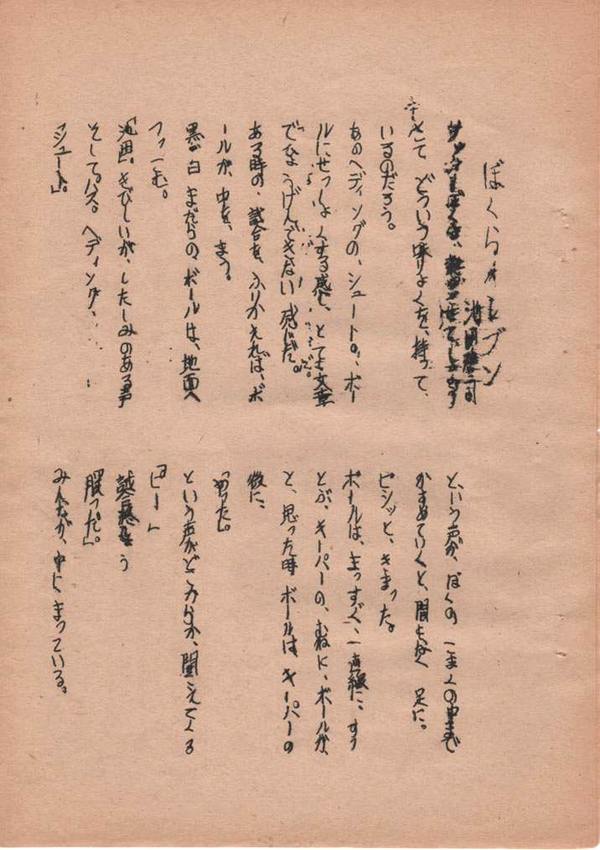 ぼくらイレブン
さて どういう みりょくを、持って、
いるのだろう。
あのヘディングの、シュート。ボー
ルにせっしょくする感じ、とても文章
でひょうげんできない 感じだ。
ある時の、試合を、ふりかえれば、ボ
ールが、中を、まう。
黒 白 まだらの、ボールは、地面へ
「池田」きびしいが、したしみのある声
そして、パス。ヘディング、
「シュート」。
という声が、ぼくの こまくの中まで
かすめていくと、間もなく 足に。
ビシッと、きまった。
ボールは、まっすぐ、一直線に、すう
とぶ、キーパーの、むねに、ボールが、
と、思った時 ボールは キーパーの
後に、
「やった」。
という声がどこからか、聞えてくる
「ピー」
「勝った」。
みんなが、中に まっている。